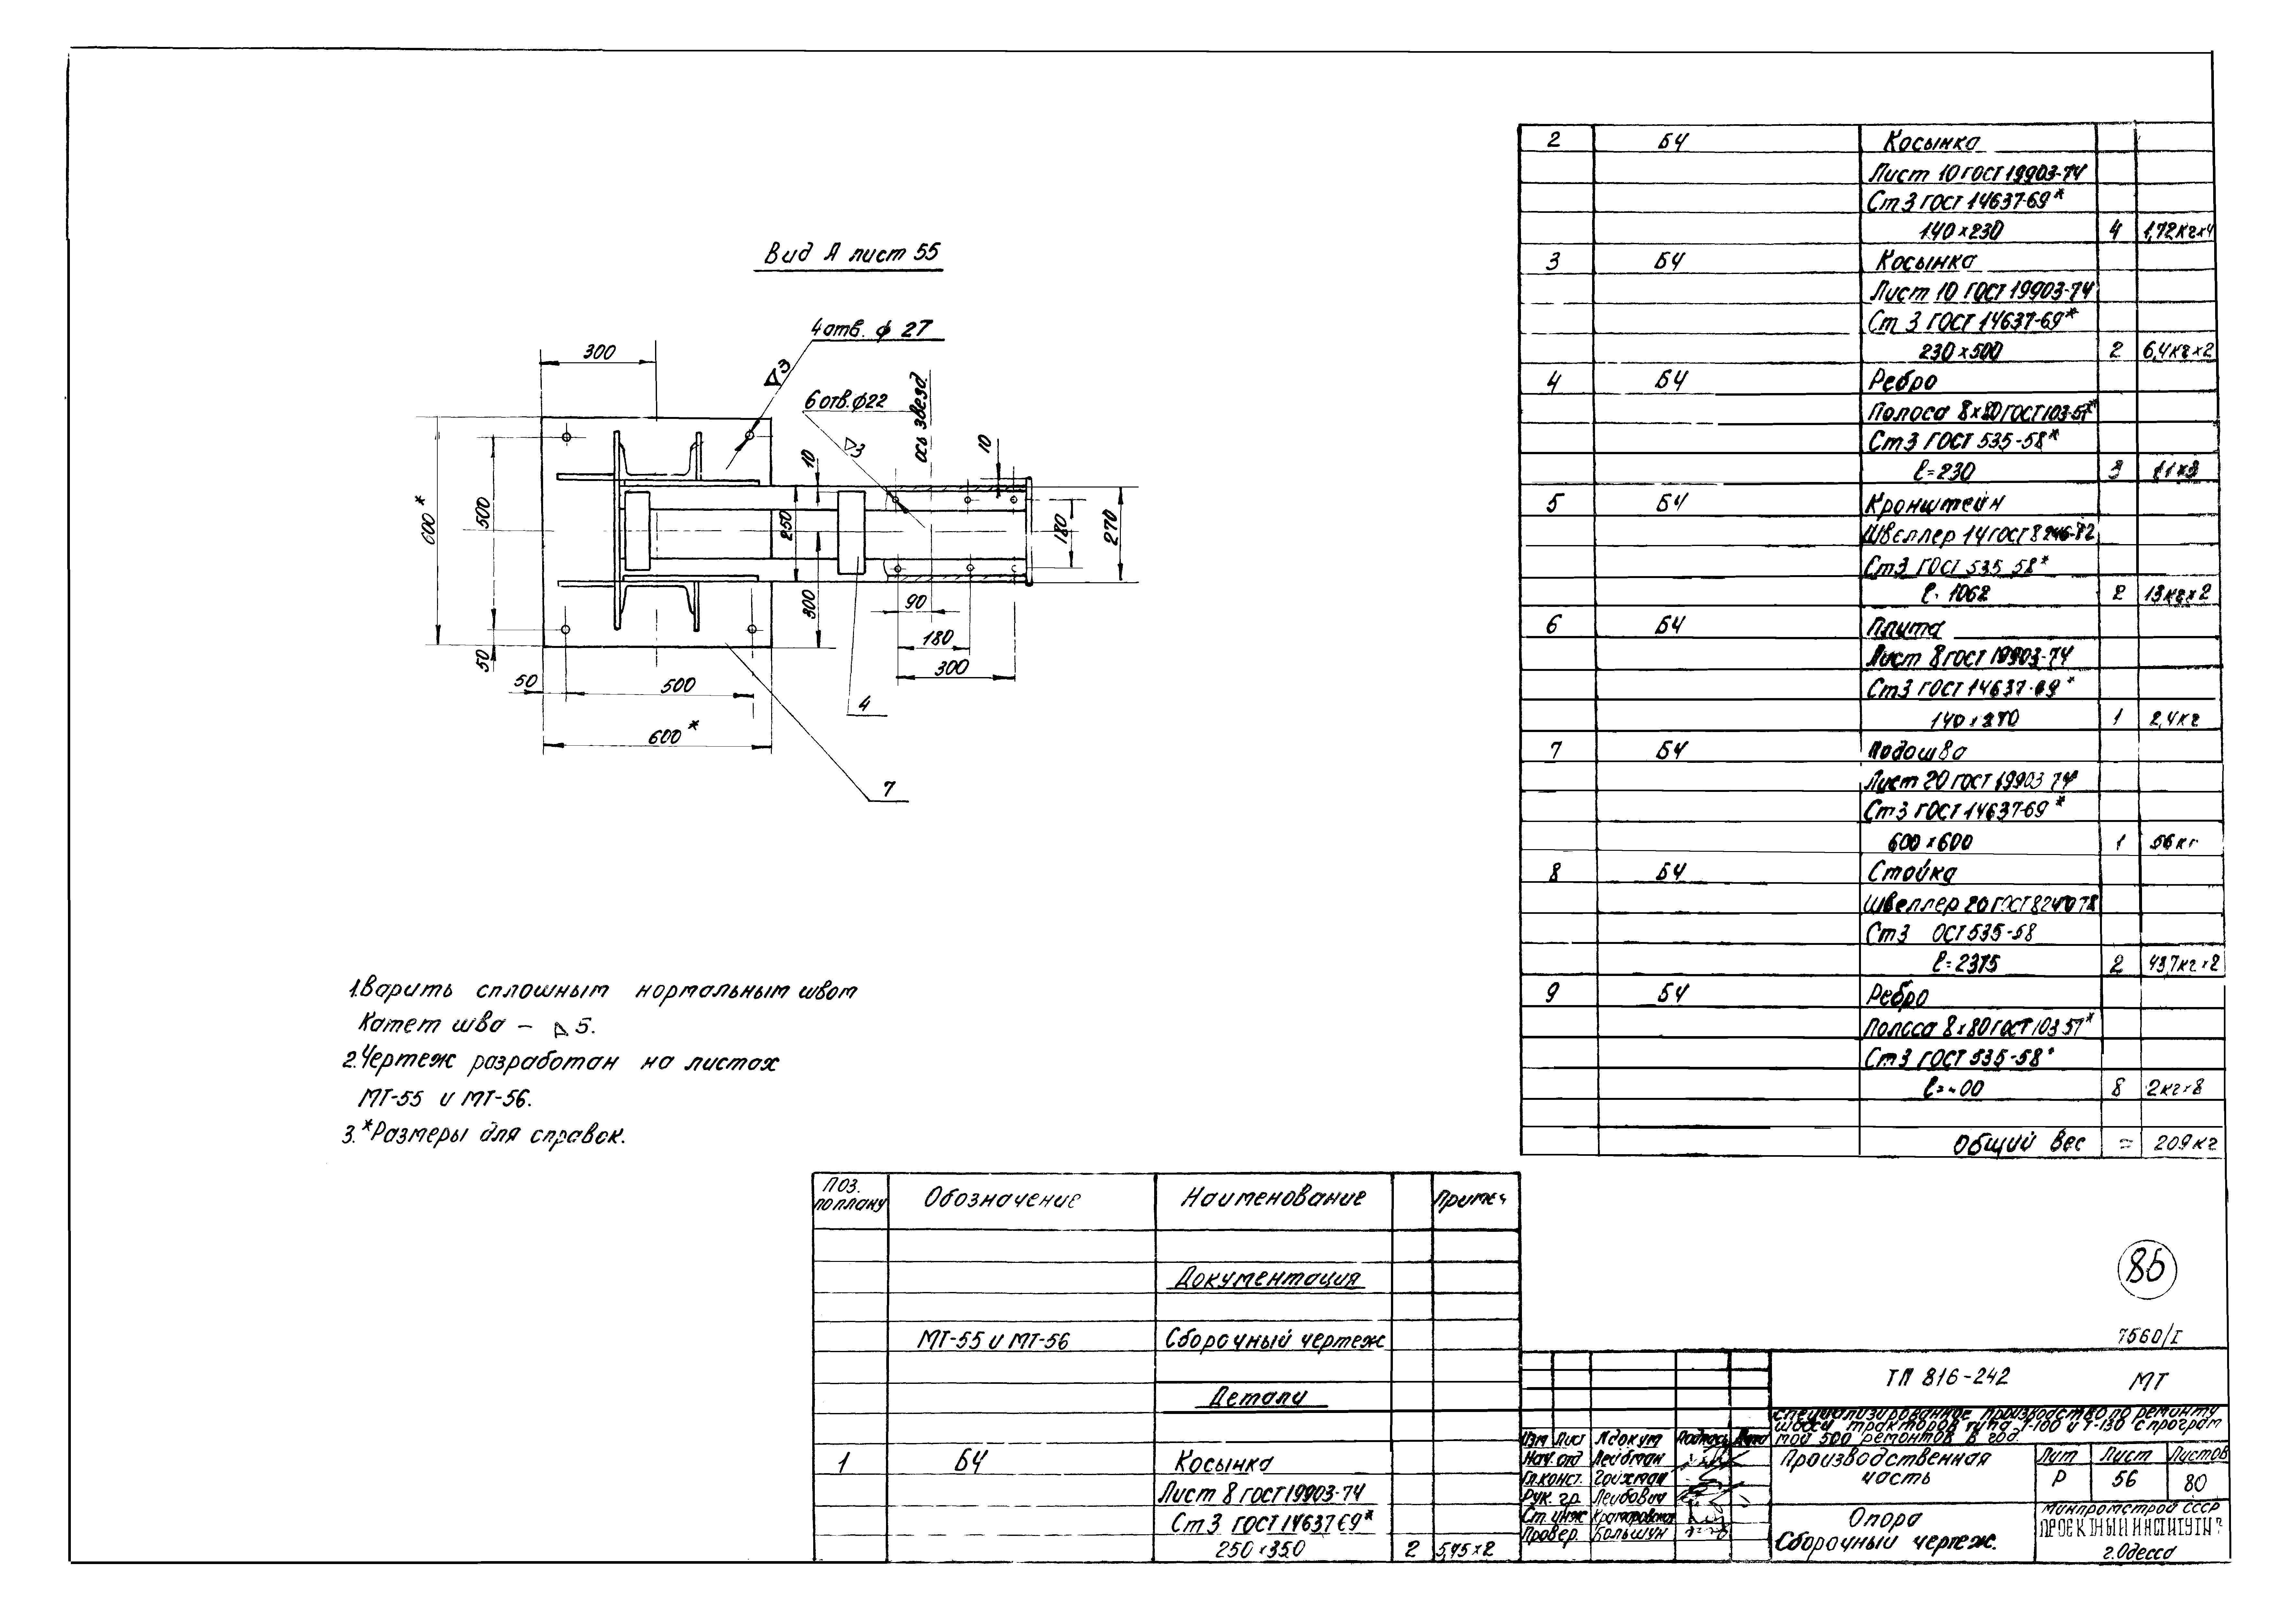 Вид А лист 55
4 отв. ϕ 27
300
▷3
6 отв. ϕ22
ось звезд.
10
▷3
10
600*
500
250
180
270
300
90
180
300
50
50
500
600*
4
7
1. Варить сплошным нормальным швом
Катет шва – ▷ 5.
2. Чертеж разработан на листах
МТ-55 и МТ-56.
3. *Размеры для справок.
2 БЧ Косынка
Лист 10 ГОСТ 19903-74
Ст 3 ГОСТ 14637-69*
140×230 4 1,72кг×4
3 БЧ Косынка
Лист 10 ГОСТ 19903-74
Ст 3 ГОСТ 14637-69*
230×500 2 6,4кг×2
4 БЧ Ребро
Полоса 8×80 ГОСТ 103-57*
Ст3 ГОСТ 535-58*
ℓ=230 3 1,1×3
5 БЧ Кронштейн
Швеллер 14 ГОСТ
Ст3 ГОСТ 535 58*
ℓ= 1062 2 13кг×2
6 БЧ Плита
Лист 8 ГОСТ 19903-74
Ст3 ГОСТ 14637-69*
140×270 1 2,4кг
7 БЧ Подошва
Лист 20 ГОСТ 19903 74
Ст3 ГОСТ 14637-69*
600×600 1 56кг
8 БЧ Стойка
Швеллер 20 ГОСТ
Ст3 ОСТ 535-58
ℓ=2375 2 43,7кг×2
9 БЧ Ребро
Полоса 8×80 ГОСТ 103 57*
Ст3 ГОСТ 535-58*
8 2кг×8
Общий вес = 209кг
Поз. по плану Обозначение Наименование Примеч
Документация
МТ-55 и МТ-56 Сборочный чертеж
Детали
1 БЧ Косынка
Лист 8 ГОСТ 19903-74
Ст3 ГОСТ 14637 69*
250×350 2 5,45×2
86
7560/I
ТП 816-242 МТ
специализированное производство по ремонту
шасси тракторов типа Т-100 и Т-130 с програм
мой 500 ремонтов в год.
Изм Лист №докум Подпись Дата
Нач. отд Лейбман
Гл. конст. Гойхман
Рук. гр. Лейбович
Ст. инж
Провер. Большун
Производственная
часть
Лит Лист Листов
Р 56 80
Опора
Сборочный чертеж.
Минпромстрой СССР
ПРОЕКТНЫЙ ИНСТИТУТ №
г. Одесса